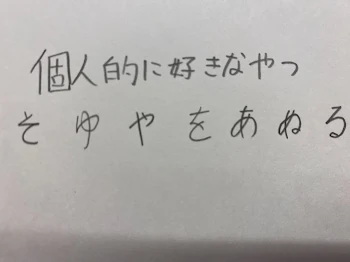 個人的に好きなやつ
そゆやをあぬる